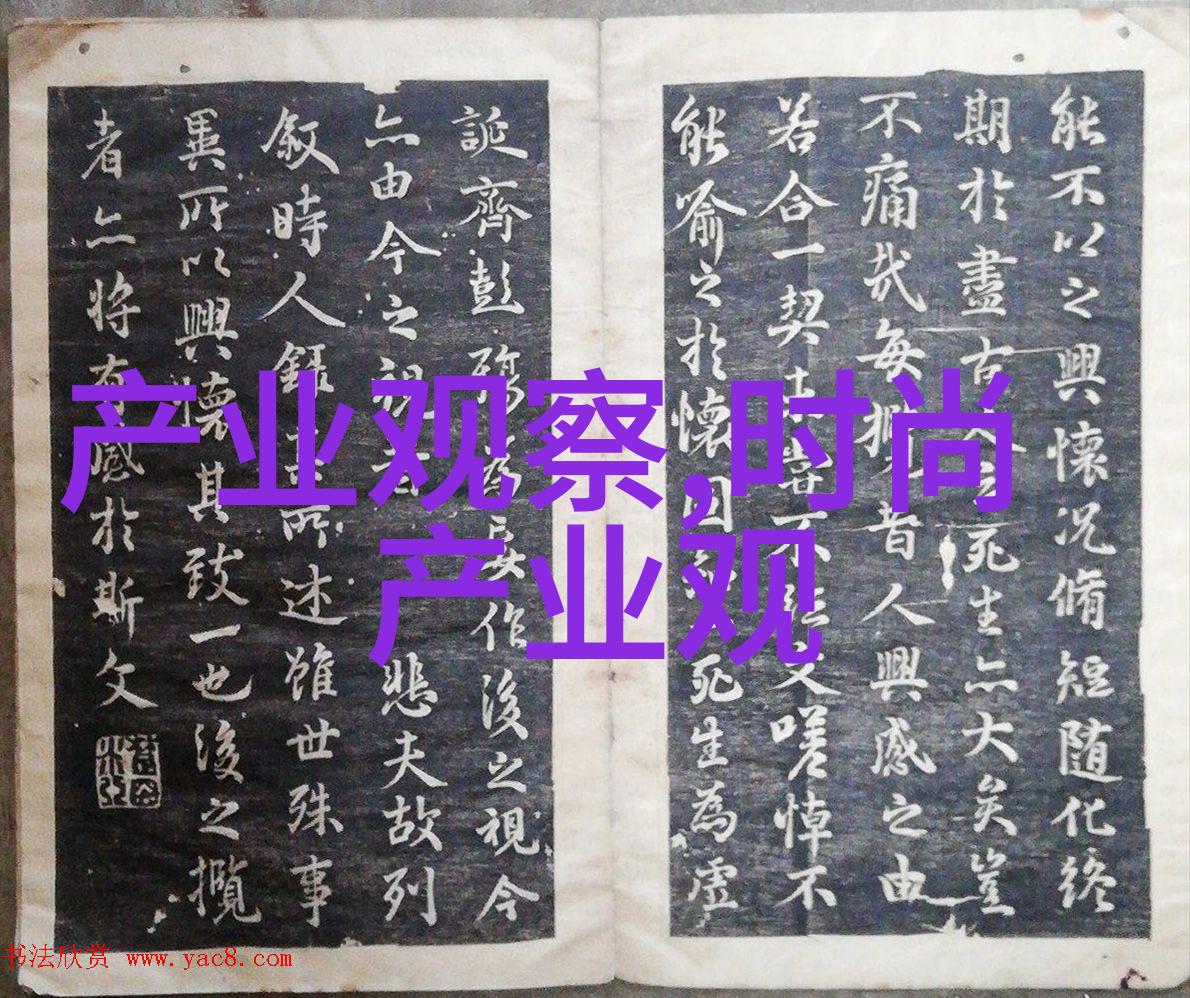 能不以之興懷況脩短隨化終
期於盡古人云死生亦大矣豈
不痛哉每攬昔人興感之由
若合一契未嘗不臨文嗟悼不
能喻之於懷固知死生為虛
誕齊彭殤為妄作後之視今
亦由今之視昔悲夫故列
敘時人錄其所述雖世殊事
異所以興懷其致一也後之攬
者亦將有感於斯文
产业观察,时尚
产业观
书法欣赏 www.yac8.com